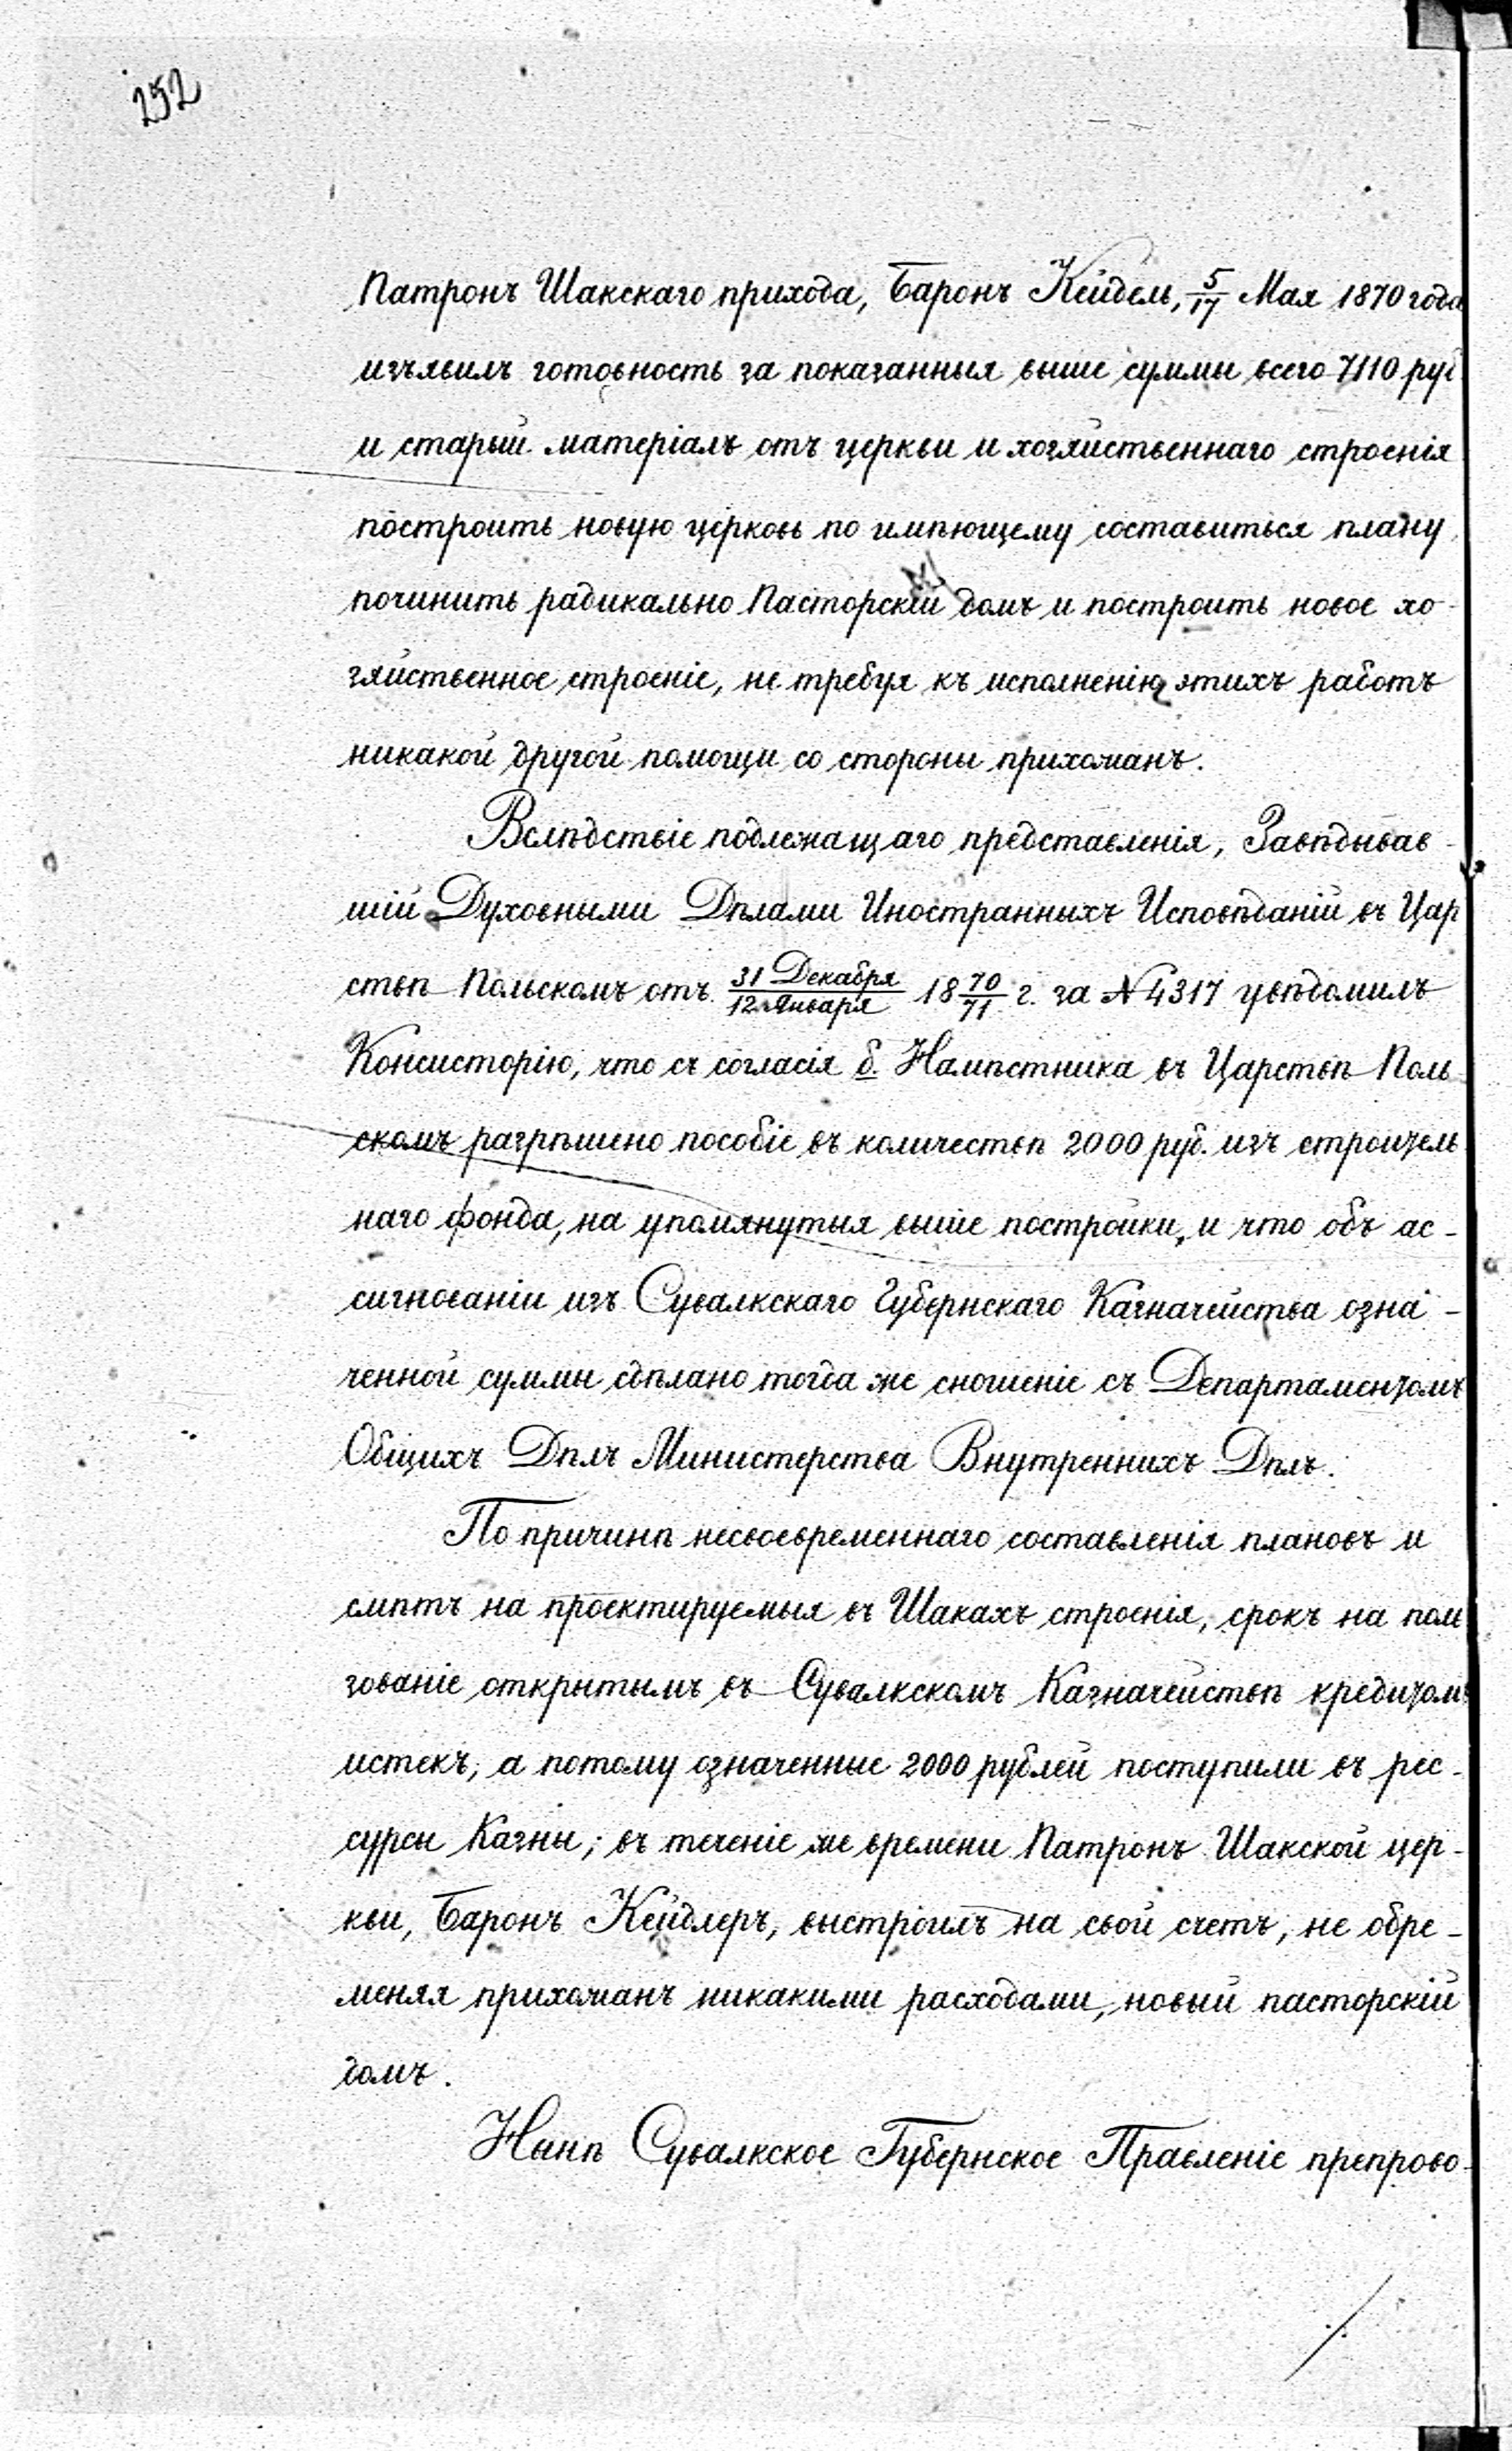 252
Патронъ Шакскаго прихода, Баронъ Кейдель, 5/17 Мая 1870 года
изъявилъ готовность за показанныя выше суммы всего 7110 руб
и старый матеріалъ отъ церкви и хозяйственнаго строенія
построить новую церковь по имѣющему составиться плану,
починить радикально Пасторскій домъ и построить новое хо-
зяйственное строеніе, не требуя къ исполненію этихъ работъ
никакой другой помощи со стороны прихожанъ.
Вслѣдствіе подлежащаго представленія, Завѣдывав-
шій Духовными Дѣлами Иностранныхъ Исповѣданій въ Цар
ствѣ Польскомъ отъ 31 Декабря/12 Января 18 70/71 г. за № 4317 увѣдомилъ
Консисторію, что съ согласія б. Намѣстника въ Царствѣ Поль
скомъ разрѣшено пособіе въ количествѣ 2000 руб. изъ строитель
наго фонда, на упомянутыя выше постройки, и что объ ас-
сигнованіи изъ Сувалкскаго Губернскаго Казначейства озна-
ченной суммы сдѣлано тогда же сношеніе съ Департаментомъ
Общихъ Дѣлъ Министерства Внутреннихъ Дѣлъ.
По причинѣ несвоевременнаго составленія плановъ и
смѣтъ на проектируемыя въ Шакахъ строенія, срокъ на поль
зованіе открытымъ въ Сувалкскомъ Казначействѣ кредитомъ
истекъ, а потому означенные 2000 рублей поступили въ рес-
сурсы Казны; въ теченіе же времени Патронъ Шакской цер-
кви, Баронъ Кейдлеръ, выстроилъ на свой счетъ, не обре-
меняя прихожанъ никакими расходами, новый пасторскій
домъ.
Нынѣ Сувалкское Губернское Правленіе препрово-
./.